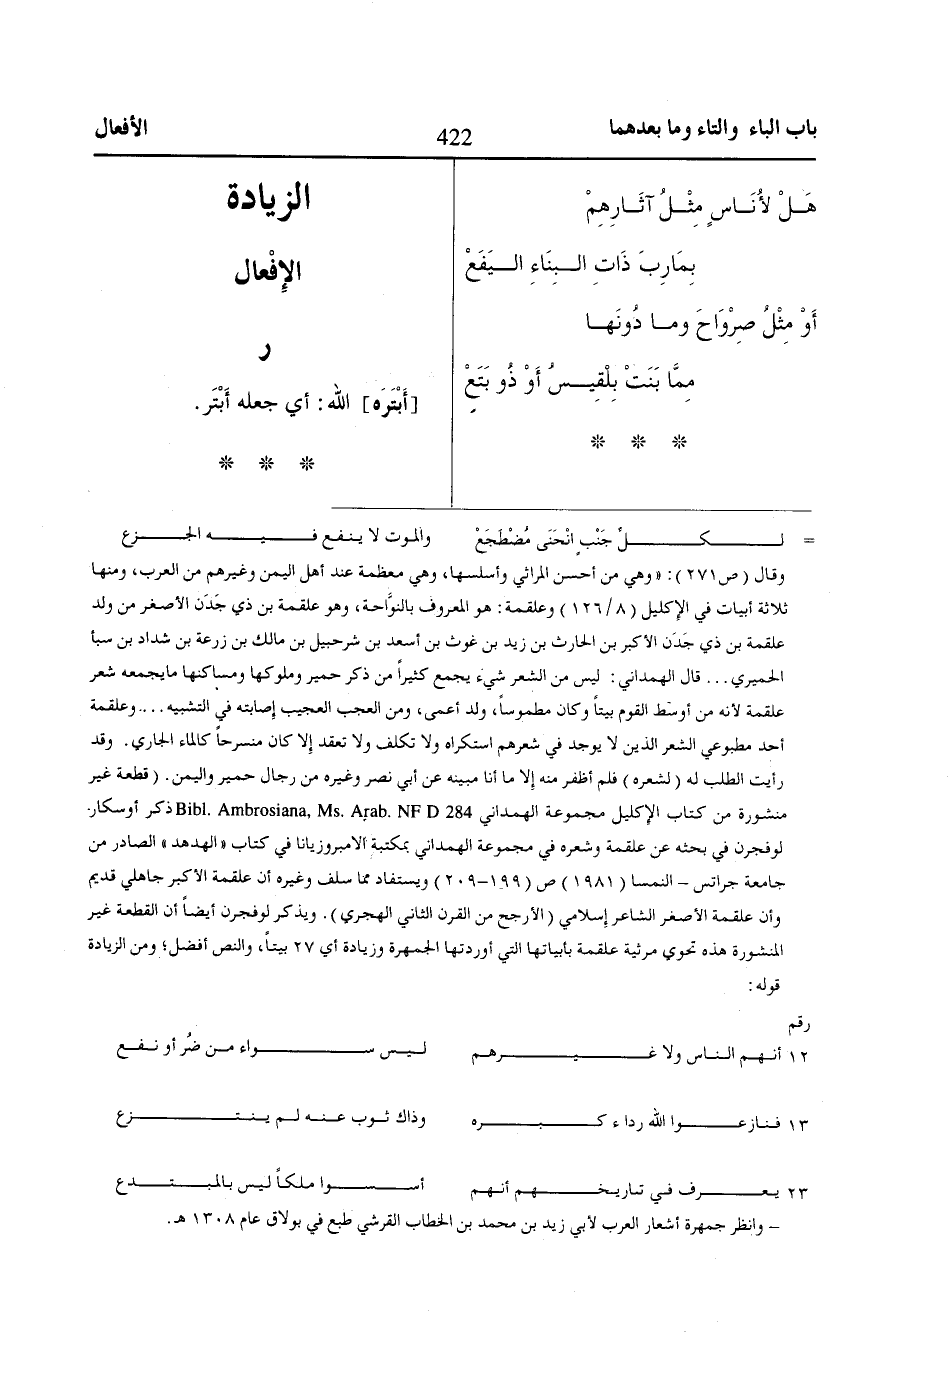 باب الباء والتاء وما بعدهما
422
الأفعال
هَــلْ لأُنَــاسٍ مِثْــلُ آثَــارِهِمْ
بِمَارِبَ ذَاتِ الــبِنَاءِ الــيَفَعْ
أَوْ مِثْلُ صِرْوَاحَ ومــا دُونَهــا
مِمَّا بَنَتْ بِلْقِيــسُ أَوْ ذُو بَتَعْ
* * *
الزيادة
الإِفْعال
ر
[أَبْتَرَه] الله: أي جعله أَبْتَر.
* * *
= لــــكــــلِّ جَنْبٍ انْحَنَى مُضْطَجَعْ والموت لا ينفع فــيــــه الجــــزع
وقال (ص٢٧١): «وهي من أحسن المراثي وأسلسها، وهي معظمة عند أهل اليمن وغيرهم من العرب، ومنها
ثلاثة أبيات في الإكليل (٨/ ١٢٦) وعلقمة: هو المعروف بالنوَّاحة، وهو علقمة بن ذي جَدَن الأصغر من ولد
علقمة بن ذي جَدَن الأكبر بن الحارث بن زيد بن غوث بن أسعد بن شرحبيل بن مالك بن زرعة بن شداد بن سبأ
الحميري... قال الهمداني: ليس من الشعر شيء يجمع كثيراً من ذكر حمير وملوكها ومساكنها مايجمعه شعر
علقمة لأنه من أوسط القوم بيتاً وكان مطموساً، ولد أعمى، ومن العجب العجيب إصابته في التشبيه....وعلقمة
أحد مطبوعي الشعر الذين لا يوجد في شعرهم استكراه ولا تكلف ولا تعقد إلا كان منسرحاً كالماء الجاري. وقد
رأيت الطلب له (لشعره) فلم أظفر منه إلا ما أنا مبينه عن أبي نصر وغيره من رجال حمير واليمن. (قطعة غير
منشورة من كتاب الإكليل مجموعة الهمداني Bibl. Ambrosiana, Ms. Arab. NF D 284 ذكر أوسكار
لوفجرن في بحثه عن علقمة وشعره في مجموعة الهمداني بمكتبة الامبروزيانا في كتاب «الهدهد» الصادر من
جامعة جراتس – النمسا (١٩٨١) ص (١٩٩-٢٠٩) ويستفاد مما سلف وغيره أن علقمة الأكبر جاهلي قديم
وأن علقمة الأصغر الشاعر إسلامي (الأرجح من القرن الثاني الهجري). ويذكر لوفجرن أيضاً أن القطعة غير
المنشورة هذه تحوي مرثية علقمة بأبياتها التي أوردتها الجمهرة وزيادة أي ٢٧ بيتاً، والنص أفضل؛ ومن الزيادة
قوله:
رقم
١٢ أنــهــم الــناس ولا غــــيــــرهــم لــيــس ســــواء مــن ضُر أو نــفــع
١٣ فــنازعــــوا الله رداء كــــبــــره وذاك ثــوب عــنــه لــم يــنــتــــزع
٢٣ يــعــــرف فــي تــاريــخــــهــم أنــهــم أســــــوا ملكــاً ليــس بالمــبــــتــــدع
– وانظر جمهرة أشعار العرب لأبي زيد بن محمد بن الخطاب القرشي طبع في بولاق عام ١٣٠٨ هـ.